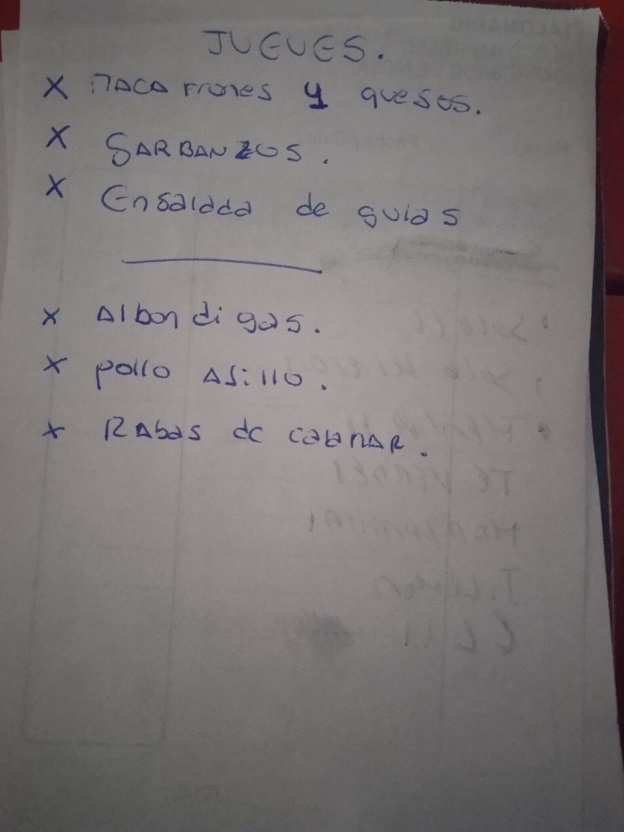 JUEVES.
x MACARRONES y quesos.
x GARBANZOS.
x Ensalada de gulas
x Albondigas.
x pollo Ajillo.
x RAbas de calamar.